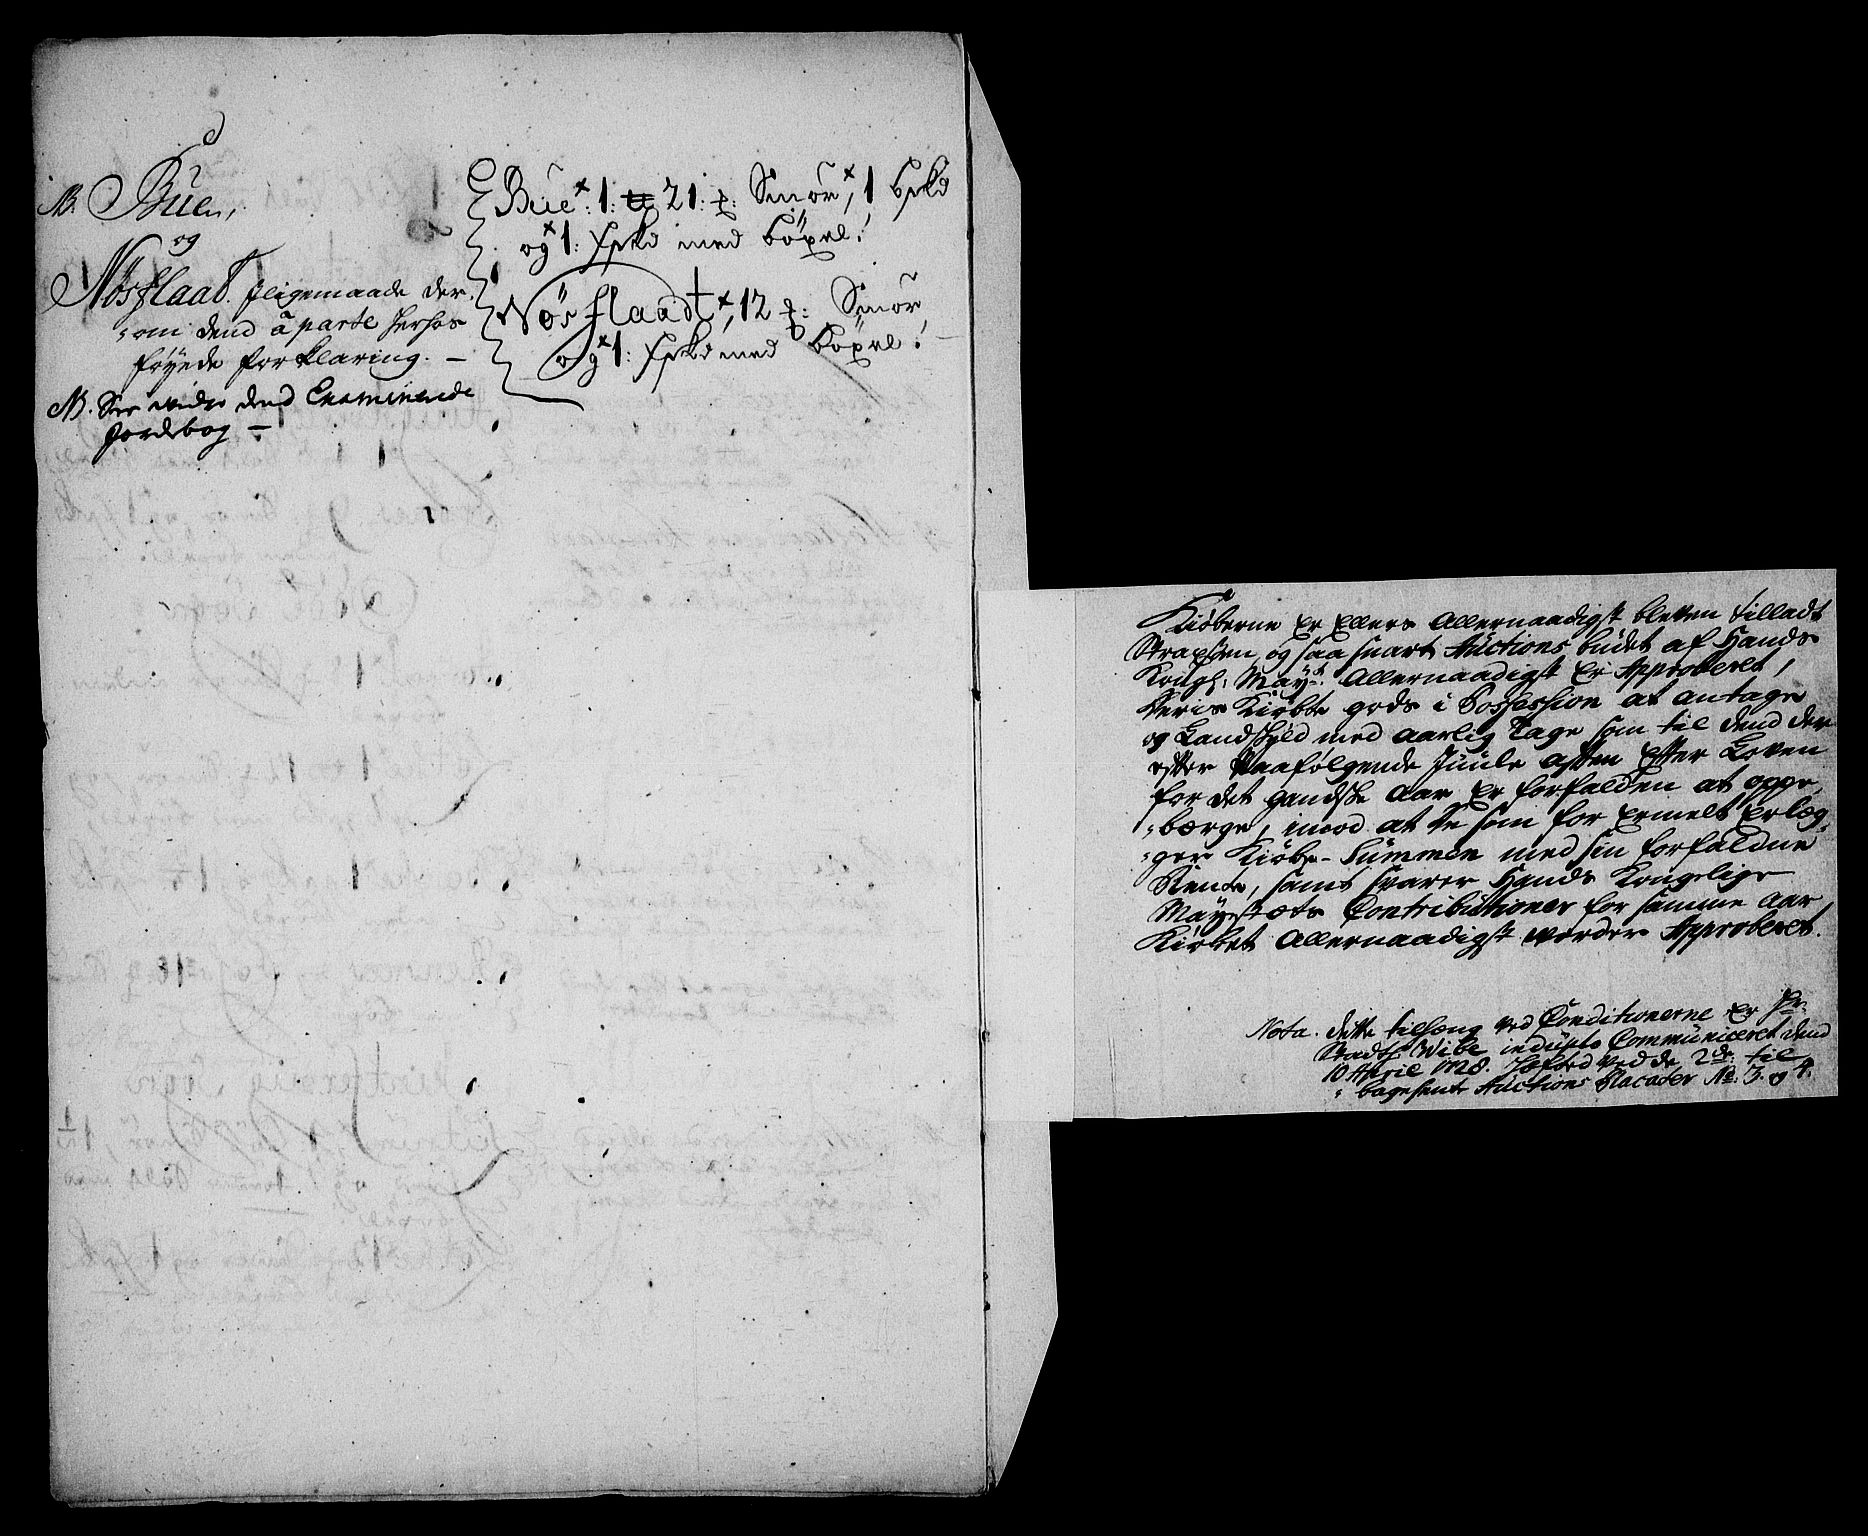 NB. Bue,
og
Nösflaad. Jligemaade der,
„om dend á parte herhos
föyede forklaring. —
NB. See vidre dend Examinerede
Jordebog —
Bue 1: 21: Smör, 1
og 1: med böxel!
Nös flaadt, 12 Smör
og 1: med böxel!
Kiöberne er ellers Allernaadigst bleven tilladt
Strax, og saa snart Auctions budet af Hands
Kongl: Mayt: Allernaadigst er Approberet,
deris Kiöbte gods i Possession at antage
og Landskyld med aarlig Tage som til dend der
efter Paafölgende Juule aften efter Loven
for det gandske Aar er forfalden at oppe„
„börge, imod at de som for ermelt erlæg„
„ger Kiöbe-Summen med sin forfaldne
Rente, samt svarer Hands Kongelige
Mayestæts Contributioner for samme Aar
Kiöbet Allernaadigst vorder Approberet.
Nota. dette tilhæng ved Conditionerne er Hr.
Stadth: Wibe in duplo Communiceret dend
10 April 1728. ved de 2de: til
„bagesente Auctions Placater No. 3. og 4.